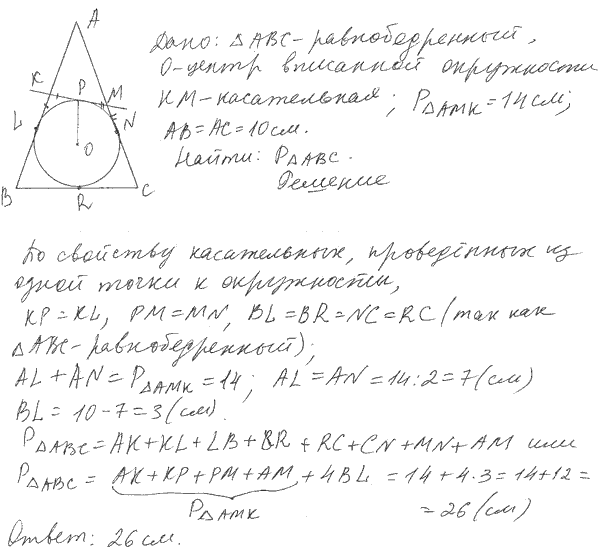 A
K
P
M
L
N
O
B
R
C
Дано: ΔABC - равнобедренный,
O-центр вписанной окружности
KM-касательная; PΔAMK = 14 см;
AB = AC = 10 см.
Найти: PΔABC.
Решение
По свойству касательных, проведённых из
одной точки к окружности,
KP = KL, PM = MN, BL = BR = NC = RC (так как
ΔABC - равнобедренный);
AL + AN = PΔAMK = 14; AL = AN = 14 : 2 = 7 (см)
BL = 10 - 7 = 3 (см).
PΔABC = AK + KL + LB + BR + RC + CN + MN + AM или
PΔABC = AK + KP + PM + AM + 4BL = 14 + 4·3 = 14 + 12 =
PΔAMK = 26 (см)
Ответ: 26 см.